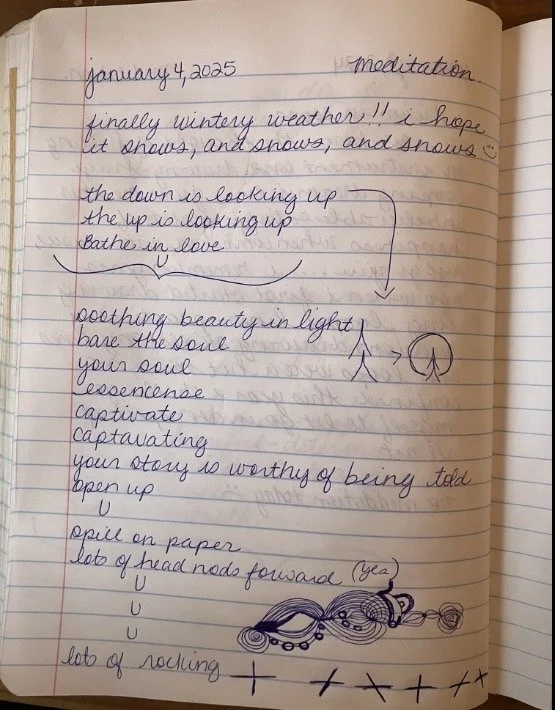 january 4, 2025 meditation.
finally wintery weather!! i hope
it snows, and snows, and snows
the down is looking up
the up is looking up
Bathe in love
soothing beauty in light
bare the soul
your soul
essencense
captivate
captavating
your story is worthy of being told
open up
spill on paper
lots of head nods forward (yea)
lots of rocking